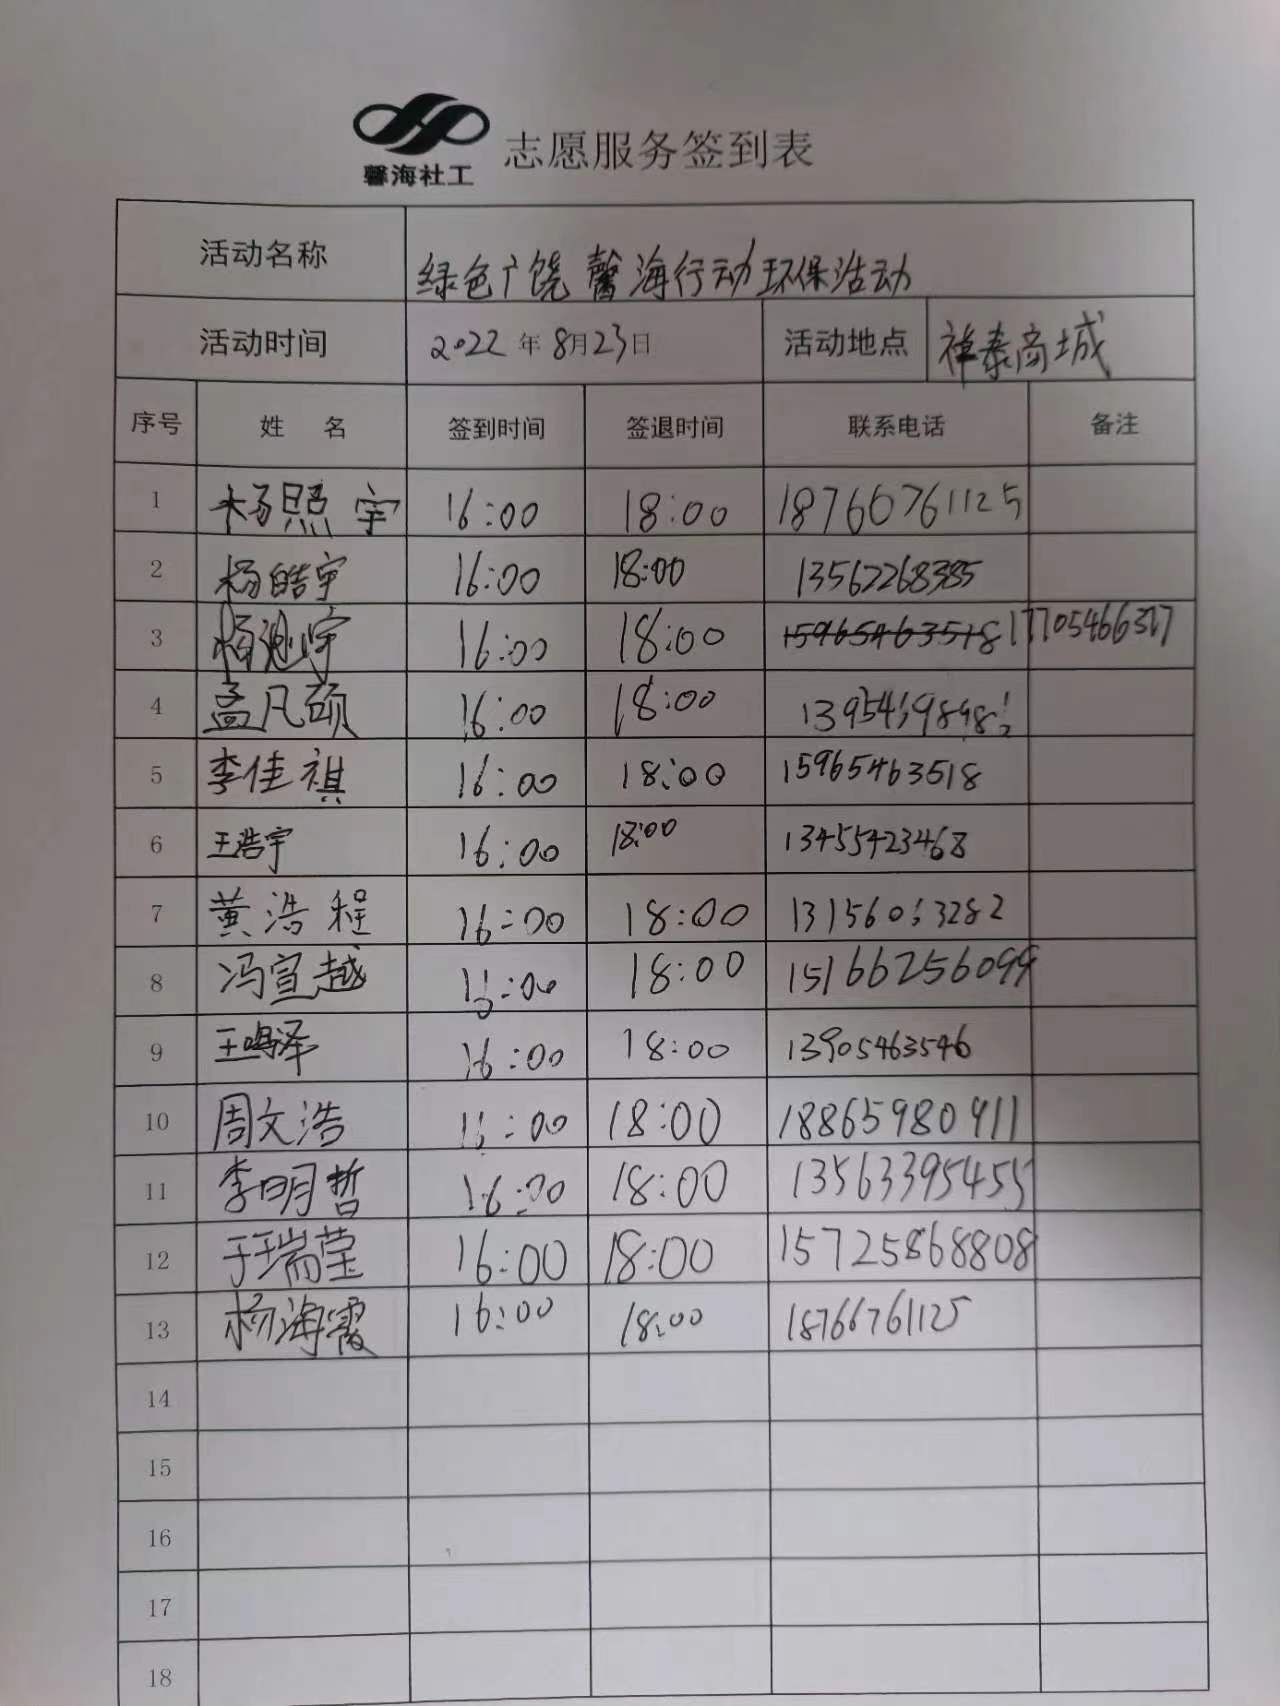 馨海社工 志愿服务签到表
活动名称 绿色广饶 馨海行动环保活动
活动时间 2022年8月23日 活动地点 祥泰商城
序号 姓 名 签到时间 签退时间 联系电话 备注
1 杨照宇 16:00 18:00 18760761125
2 杨皓宇 16:00 18:00 13562268385
3 16:00 18:00 15965463518 17705466317
4 孟凡硕 16:00 18:00
5 李佳祺 16:00 18:00 15965463518
6 王浩宇 16:00 18:00 13455423468
7 黄浩程 16:00 18:00 13156013282
8 冯宣越 16:00 18:00 15166256099
9 王鸣泽 16:00 18:00 13905463546
10 周文浩 16:00 18:00 18865980911
11 李明哲 16:00 18:00 13563395455
12 于瑞莹 16:00 18:00 15725868808
13 杨海霞 16:00 18:00 18766761125
14
15
16
17
18